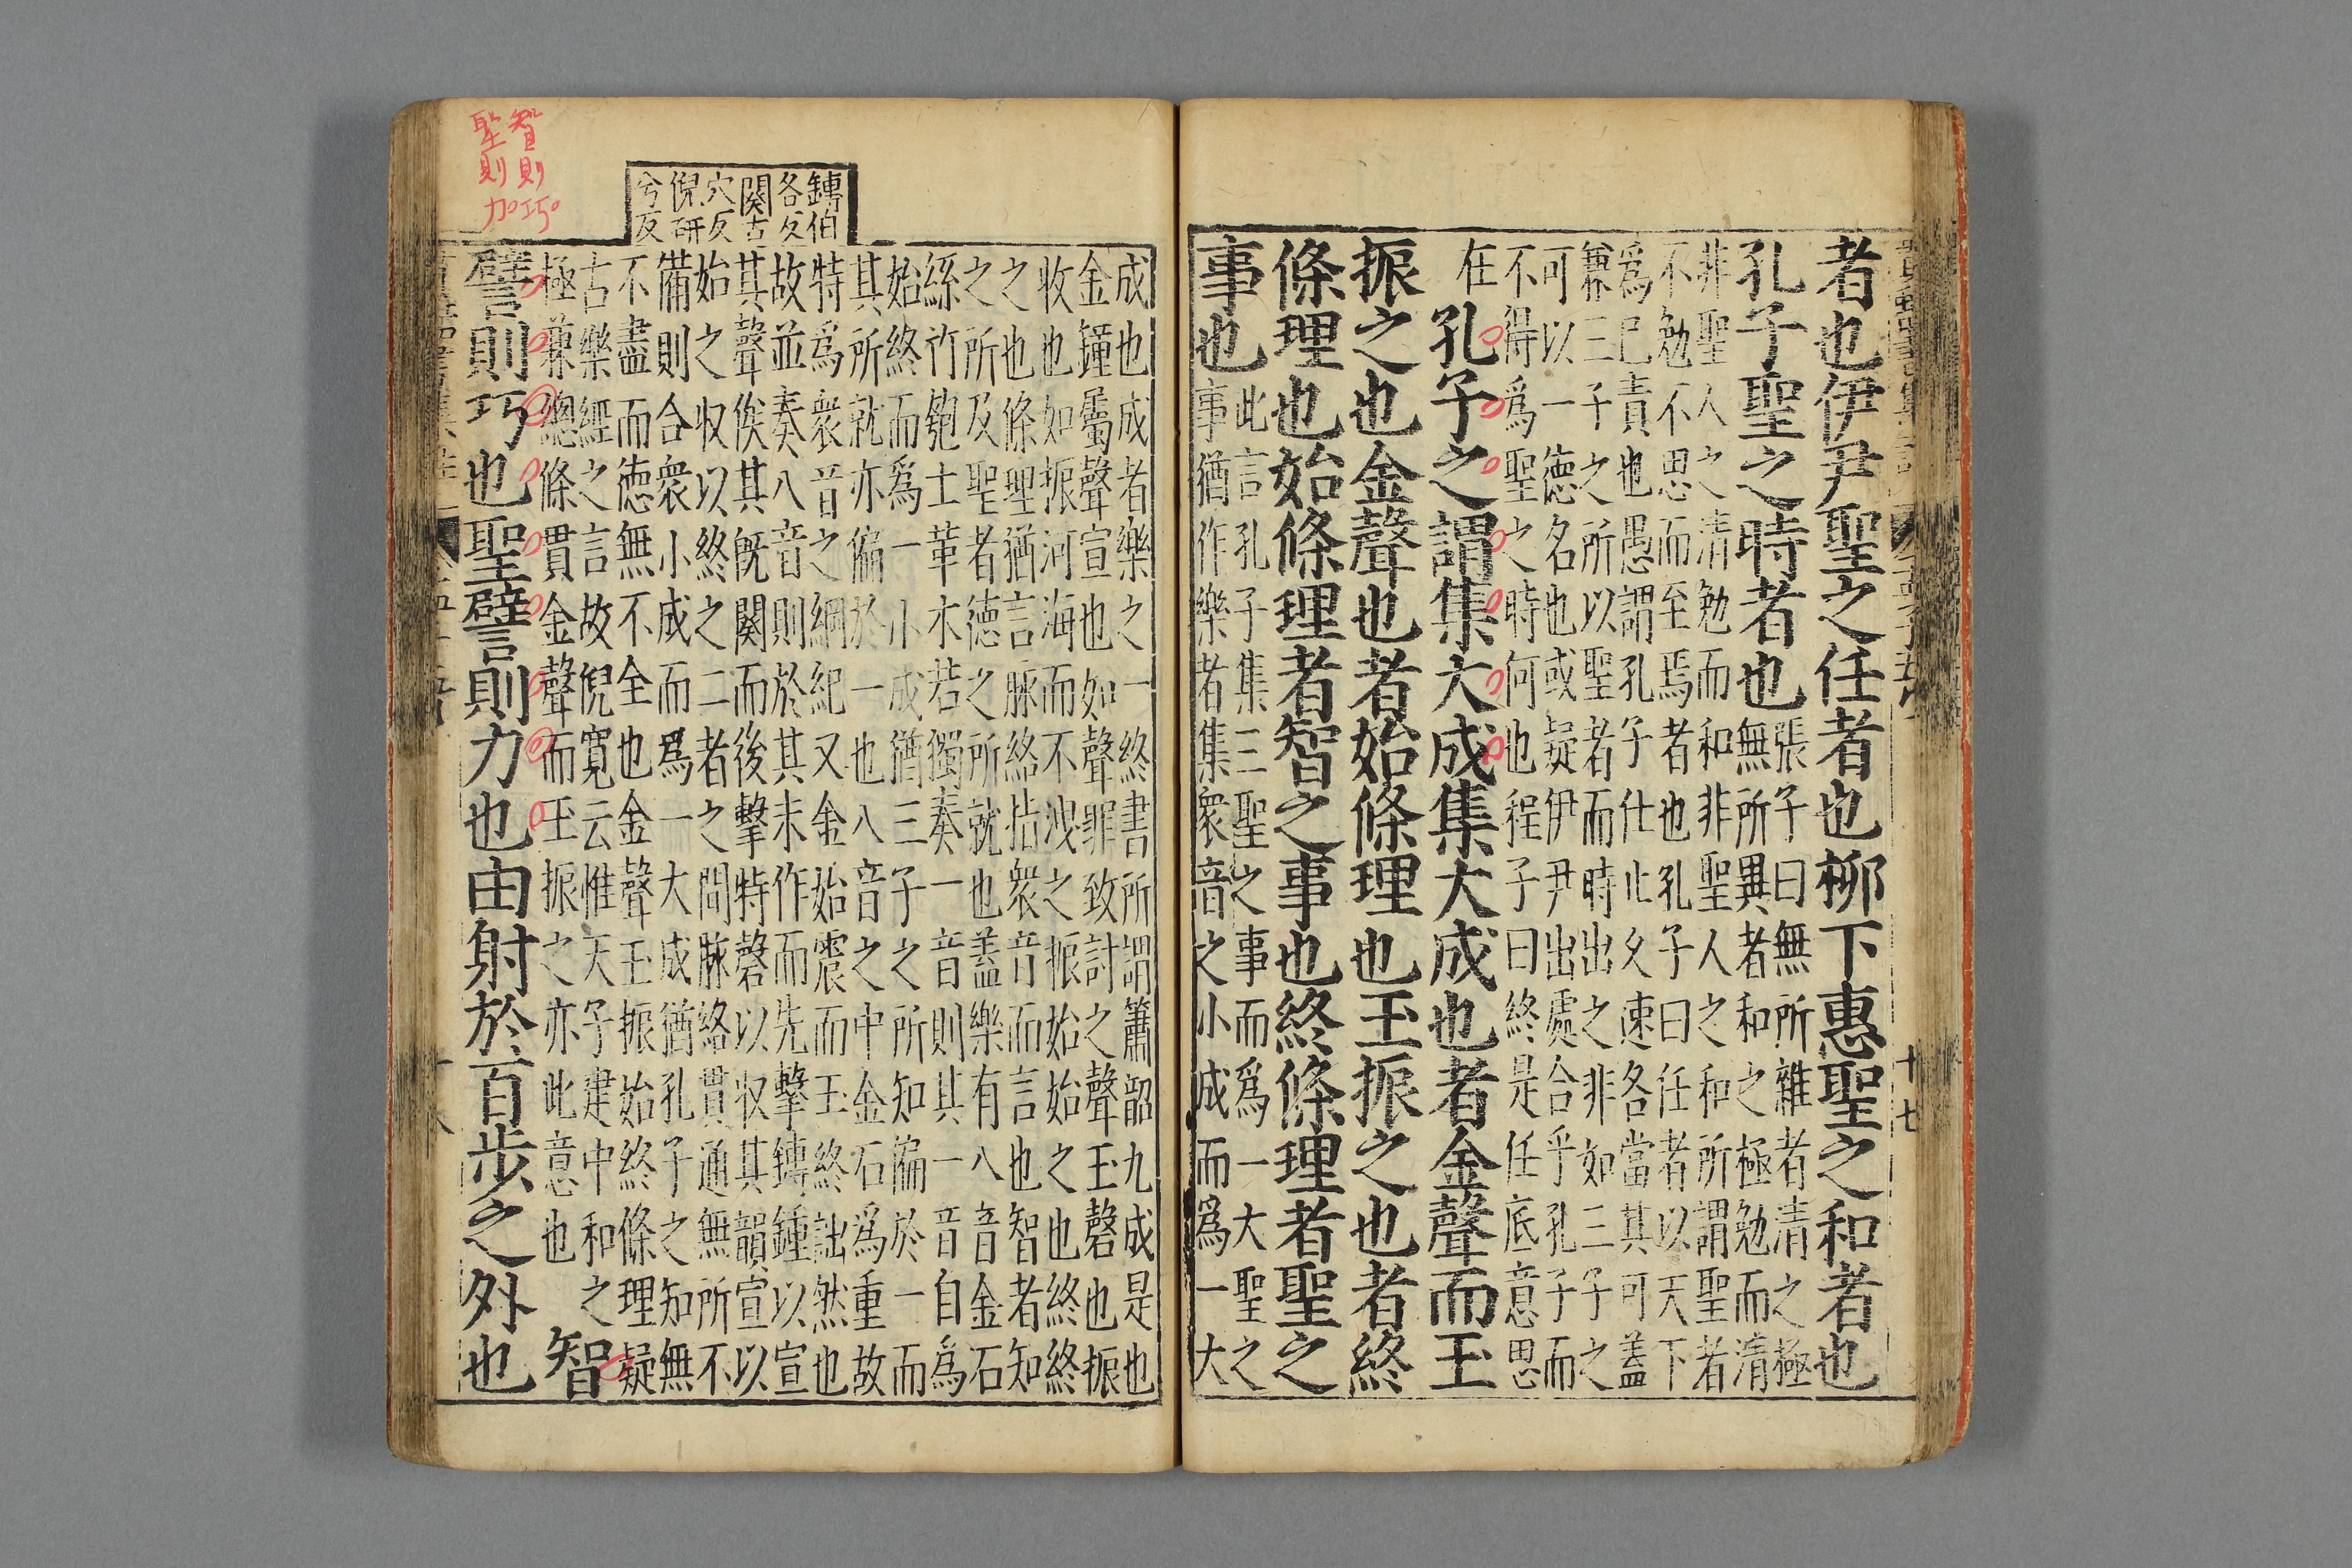 者也伊尹聖之任者也柳下惠聖之和者也
孔子聖之時者也張子曰無所雜者清之極
無所異者和之極勉而清
非聖人之清勉而和非聖人之和所謂聖者
不勉不思而至焉者也孔子曰任者以天下
爲己責也愚謂孔子仕止久速各當其可蓋
兼三子之所以聖者而時出之非如三子之
可以一德名也或疑伊尹出處合乎孔子而
不得爲聖之時何也程子曰終是任底意思
在 孔子之謂集大成集大成也者金聲而玉
振之也金聲也者始條理也玉振之也者終
條理也始條理者智之事也終條理者聖之
事也此言孔子集三聖之事而爲一大聖之
事猶作樂者集衆音之小成而爲一大
十七
成也成者樂之一終書所謂簫韶九成是也
金鐘屬聲宣也如聲罪致討之聲玉磬也振
收也如振河海而不洩之振始始之也終終
之也條理猶言脉絡指衆音而言也智者知
之所及聖者德之所就也蓋樂有八音金石
絲竹匏土革木若獨奏一音則其一音自爲
始終而爲一小成猶三子之所知偏於一而
其所就亦偏於一也八音之中金石爲重故
特爲衆音之綱紀又金始震而玉終詘然也
故並奏八音則於其未作而先擊鎛鍾以宣
其聲俟其旣闋而後擊特磬以收其韻宣以
始之收以終之二者之間脉絡貫通無所不
備則合衆小成而爲一大成猶孔子之知無
不盡而德無不全也金聲玉振始終條理疑
古樂經之言故倪寬云惟天子建中和之
極兼總條貫金聲而玉振之亦此意也 智
譬則巧也聖譬則力也由射於百步之外也
鎛伯
各反
闋古
穴反
倪研
兮反
智則巧
聖則力